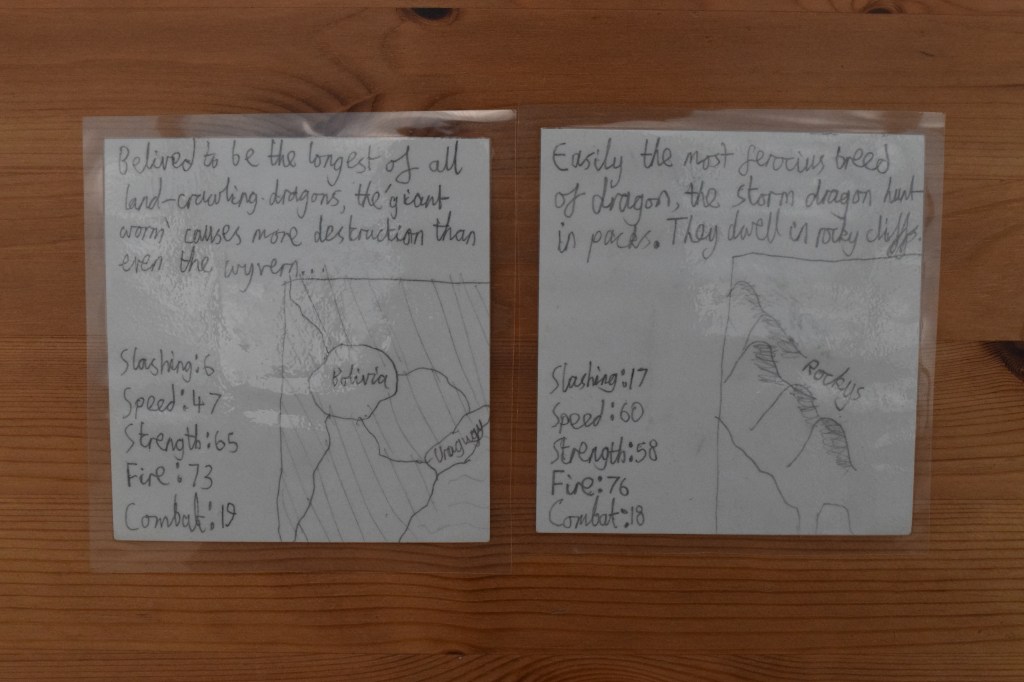 Belived to be the longest of all
land-crawling dragons, the 'giant
worm' causes more destruction than
even the wyvern...
Slashing:6
Speed:47
Strength:65
Fire:73
Combat:19
Bolivia
Uraguay
Easily the most ferocius breed
of dragon, the storm dragon hunt
in packs. They dwell in rocky cliffs.
Slashing:17
Speed:60
Strength:58
Fire:76
Combat:18
Rockys